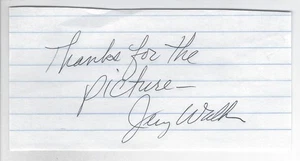 Thanks for the
picture—
Jerry Walk